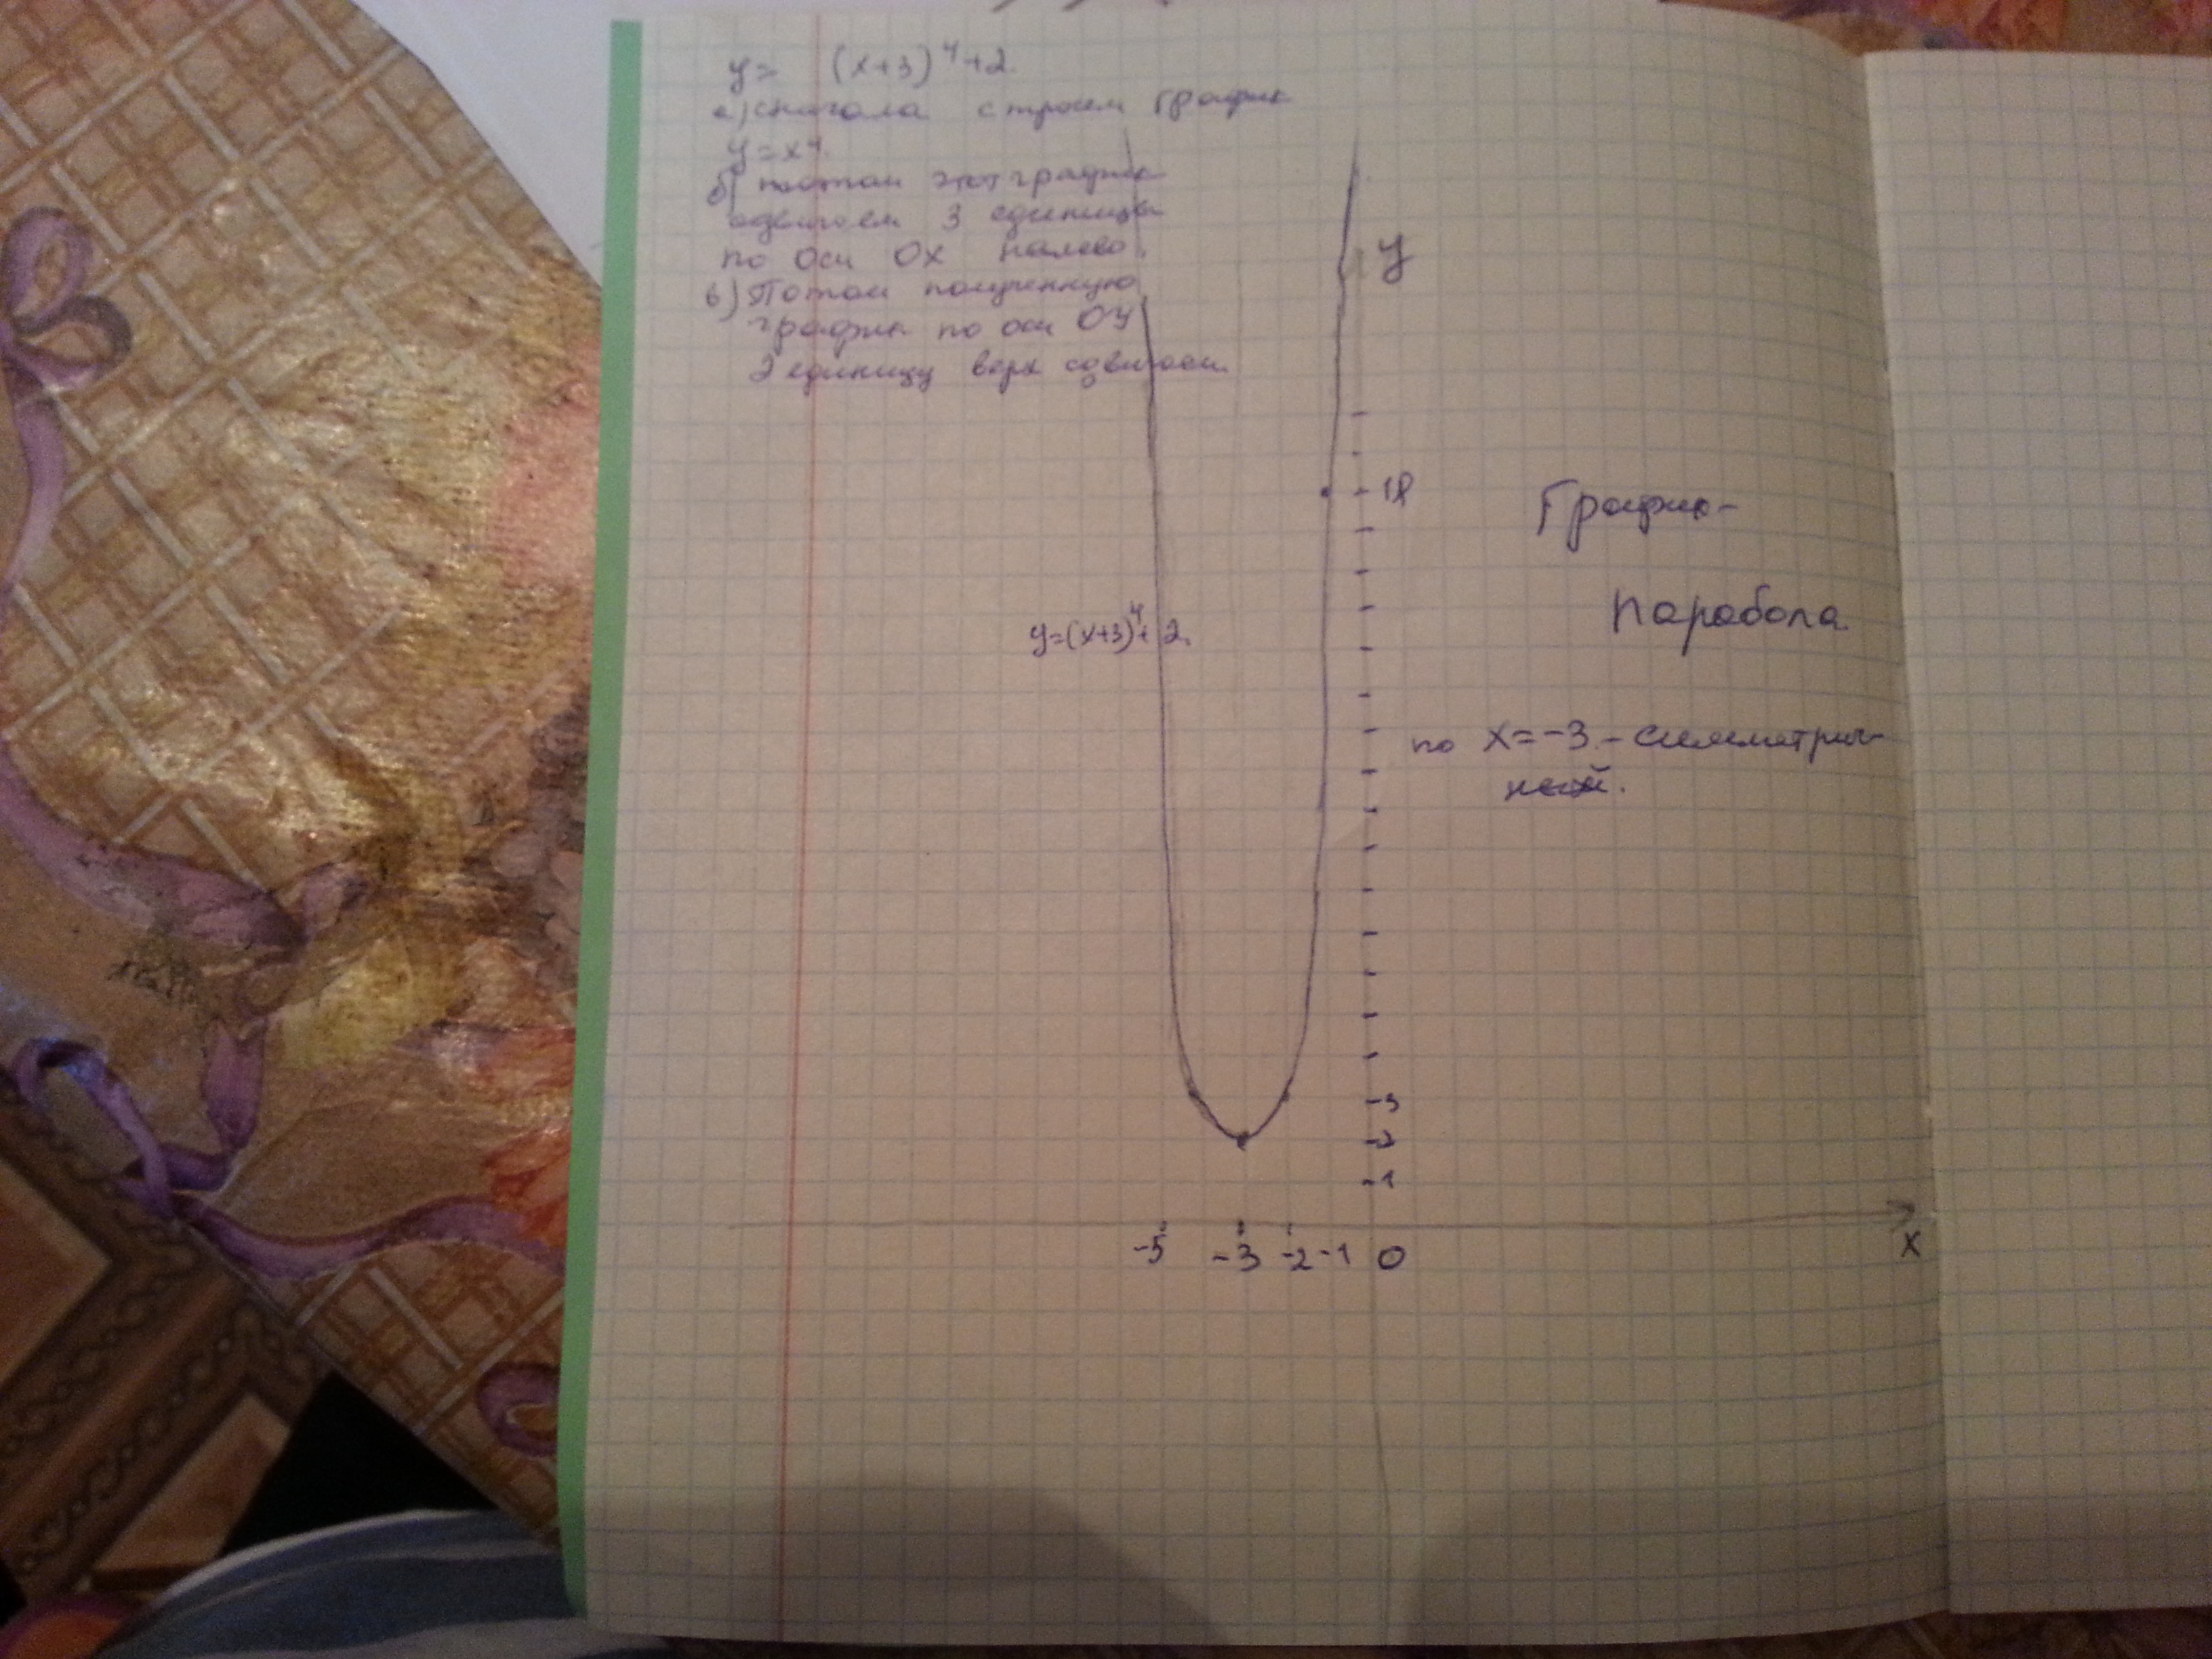 y= (x+3)⁴+2.
а) сначала строем график
y=x⁴.
б) потом этот график
сдвигаем 3 единицы
по оси OX налево.
в) Потом полученную
график по оси OY
2 единицу верх сдвигаем.
y
18
График-
парабола.
y=(x+3)⁴+2.
по x=-3.- симметрич-
ной.
-3
-2
-1
-5 -3 -2 -1 0
x